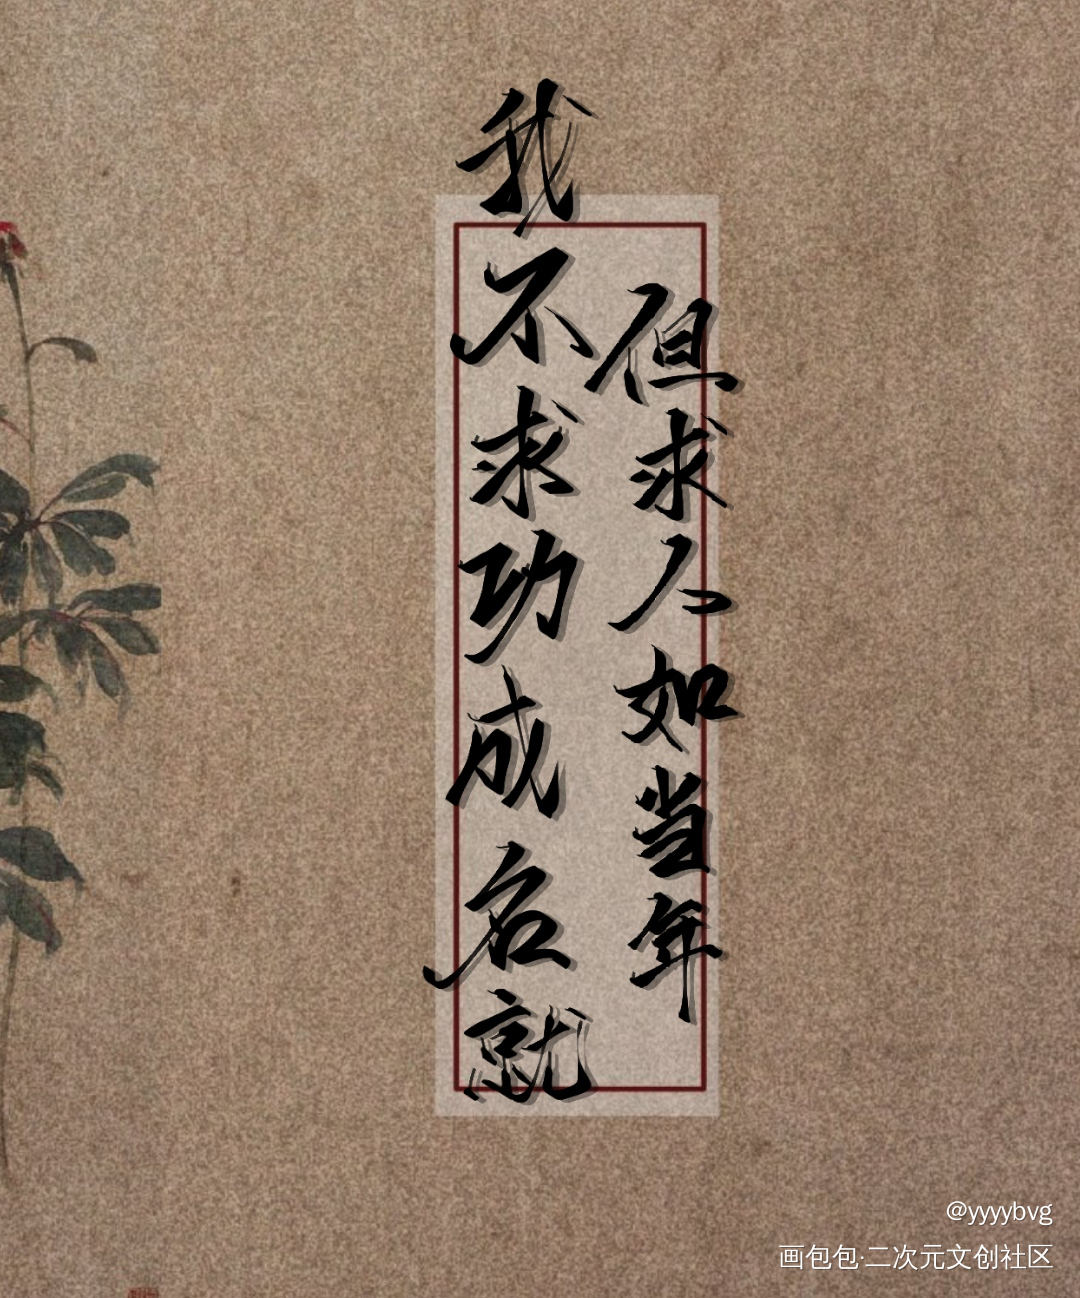 我不求功成名就
但求人如当年
@yyyybvg
画包包·二次元文创社区